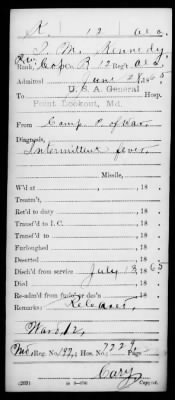 K. 12 Ala.
T. M. Kennedy
Rank, Corp. B 12 Reg't Ala.
Admitted June 28, 1865
U. S. A. General
To Hosp.
Point Lookout, Md.
From Camp P. of War
Diagnosis,
Intermittent fever
Missile,
W'd at , 18 .
Treatm't,
Ret'd to duty , 18 .
Transf'd to I. C. , 18 .
Transf'd to , 18 .
Furloughed , 18 .
Deserted , 18 .
Disch'd from service July 13, 1865
Died , 18 .
Re-adm'd from furlo' or des'n , 18 .
Remarks: Released
Ward 12,
Md. Reg. No. 192; Hos. No. 7729; Page
Cary
Copyist.